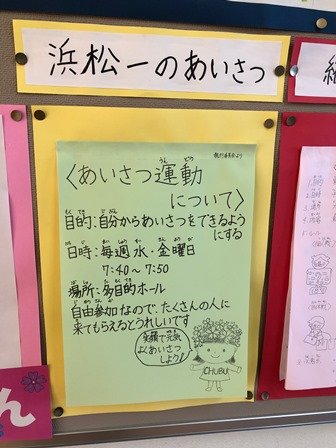 浜松一のあいさつ
〈あいさつ運動
について〉
目的:自分からあいさつをできるよう
にする
日時:毎週水・金曜日
7:40～7:50
場所:多目的ホール
自由参加なので、たくさんの人に
来てもらえるとうれしいです
笑顔で元気
よくあいさつ
しよう!
CHUBU
ん